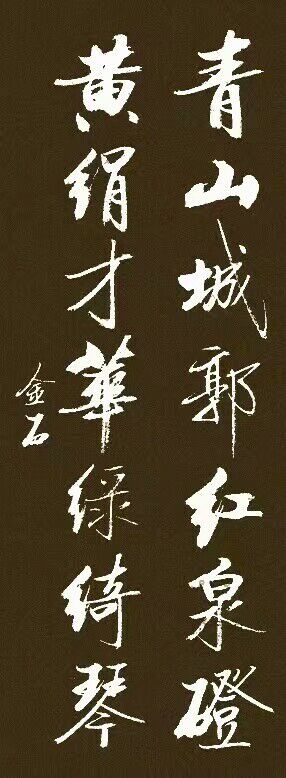 青山城郭红泉磴
黄绢才華绿绮琴
金石